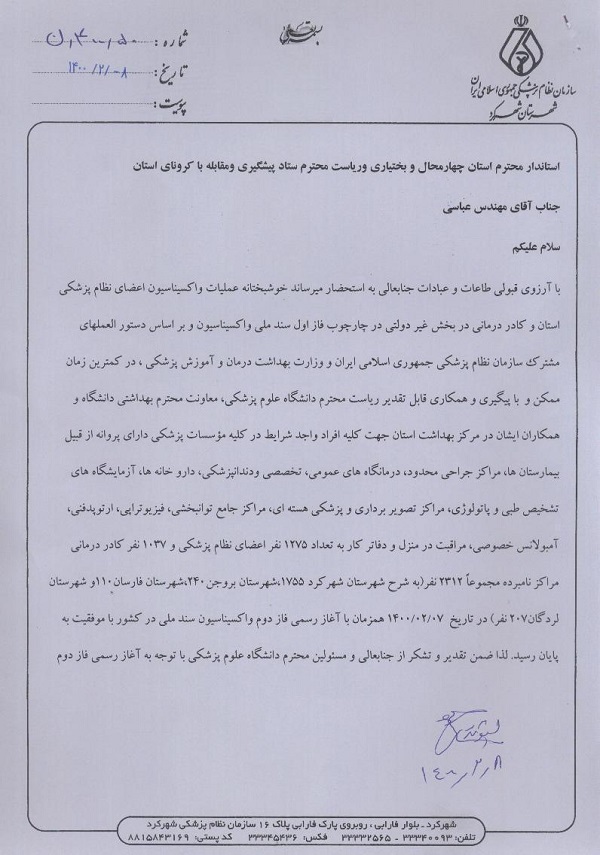 سازمان نظام پزشکی جمهوری اسلامی ایران
شهرستان شهرکرد
شماره :
تاریخ: ۱۴۰۰/۲/۰۸
پیوست:
استاندار محترم استان چهارمحال و بختیاری وریاست محترم ستاد پیشگیری ومقابله با کرونای استان
جناب آقای مهندس عباسی
سلام علیکم
با آرزوی قبولی طاعات و عبادات جنابعالی به استحضار میرساند خوشبختانه عملیات واکسیناسیون اعضای نظام پزشکی
استان و کادر درمانی در بخش غیر دولتی در چارچوب فاز اول سند ملی واکسیناسیون و بر اساس دستور العملهای
مشترک سازمان نظام پزشکی جمهوری اسلامی ایران و وزارت بهداشت درمان و آموزش پزشکی ، در کمترین زمان
ممکن و با پیگیری و همکاری قابل تقدیر ریاست محترم دانشگاه علوم پزشکی، معاونت محترم بهداشتی دانشگاه و
همکاران ایشان در مرکز بهداشت استان جهت کلیه افراد واجد شرایط در کلیه مؤسسات پزشکی دارای پروانه از قبیل
بیمارستان ها، مراکز جراحی محدود، درمانگاه های عمومی، تخصصی ودندانپزشکی، دارو خانه ها، آزمایشگاه های
تشخیص طبی و پاتولوژی، مراکز تصویر برداری و پزشکی هسته ای، مراکز جامع توانبخشی، فیزیوتراپی، ارتوپدفنی،
آمبولانس خصوصی، مراقبت در منزل و دفاتر کار به تعداد ۱۲۷۵ نفر اعضای نظام پزشکی و ۱۰۳۷ نفر کادر درمانی
مراکز نامبرده مجموعاً ۲۳۱۲ نفر(به شرح شهرستان شهرکرد ۱۷۵۵،شهرستان بروجن۲۴۰،شهرستان فارسان۱۱۰و شهرستان
لردگان۲۰۷ نفر) در تاریخ ۱۴۰۰/۰۲/۰۷ همزمان با آغاز رسمی فاز دوم واکسیناسیون سند ملی در کشور با موفقیت به
پایان رسید. لذا ضمن تقدیر و تشکر از جنابعالی و مسئولین محترم دانشگاه علوم پزشکی با توجه به آغاز رسمی فاز دوم
۱۴۰۰/۲/۸
شهرکرد ـ بلوار فارابی ، روبروی پارک فارابی پلاک ۱۶ سازمان نظام پزشکی شهرکرد
تلفن: ۳۳۳۴۰۰۹۳ - ۳۳۳۳۲۵۶۵ فکس: ۳۳۳۴۵۴۳۶ کد پستی: ۸۸۱۵۸۴۳۱۶۹